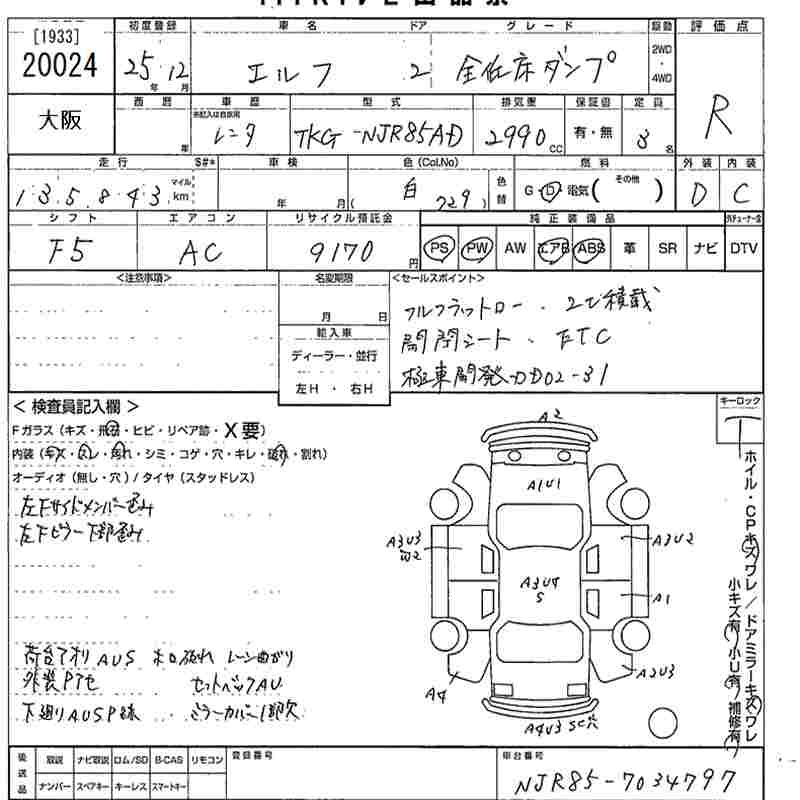 [1933]
20024
大阪
初度登録 車名 ドア グレード 駆動 評価点
25年 12月 エルフ 2 全低床ダンプ 2WD・4WD R
西暦 車歴 型式 排気量 保証書 定員
年 未記入は自家用 レンタ TKG-NJR85AD 2990CC 有・無 3名
走行 S#* 車検 色(Col.No) 燃料 外装 内装
135843 マイル km 年 月 白 ( 729 ) 色替 G D 電気 ( その他 ) D C
シフト エアコン リサイクル預託金 純正装備品
F5 AC 9170円 PS PW AW エアB ABS 革 SR ナビ DTV
<注意事項> 名変期限 <セールスポイント>
月 日
フルフラットロー・2t積載
輸入車
開閉シート・ETC
ディーラー・並行
極東開発DD02-31
左H・右H
< 検査員記入欄 > キーロック
Fガラス(キズ・飛石・ヒビ・リペア跡・X要)
内装(キズ・汚レ・スレ・シミ・コゲ・穴・キレ・破れ・割れ)
オーディオ(無し・穴)/タイヤ(スタッドレス)
左Fサイドメンバー歪み
左Fピラー下部歪み
荷台アオリAUS ホロ破れ レーン曲がり
外装Pアセ セットバックAU
下廻りAUSP錆 ミラーカバー1部欠
A2
A1U1
A3U3
凹2
A3U2
A3U4
S
A1
A4
A2U3
A4U3 SC穴
ホイル・CPキズワレ/ドアミラーキズワレ
小キズ有 小U有 補修有
後送品 取説 ナビ取説 ロム/SD B-CAS リモコン 登録番号 車台番号
ナンバー スペアキー キーレス スマートキー NJR85-7034797